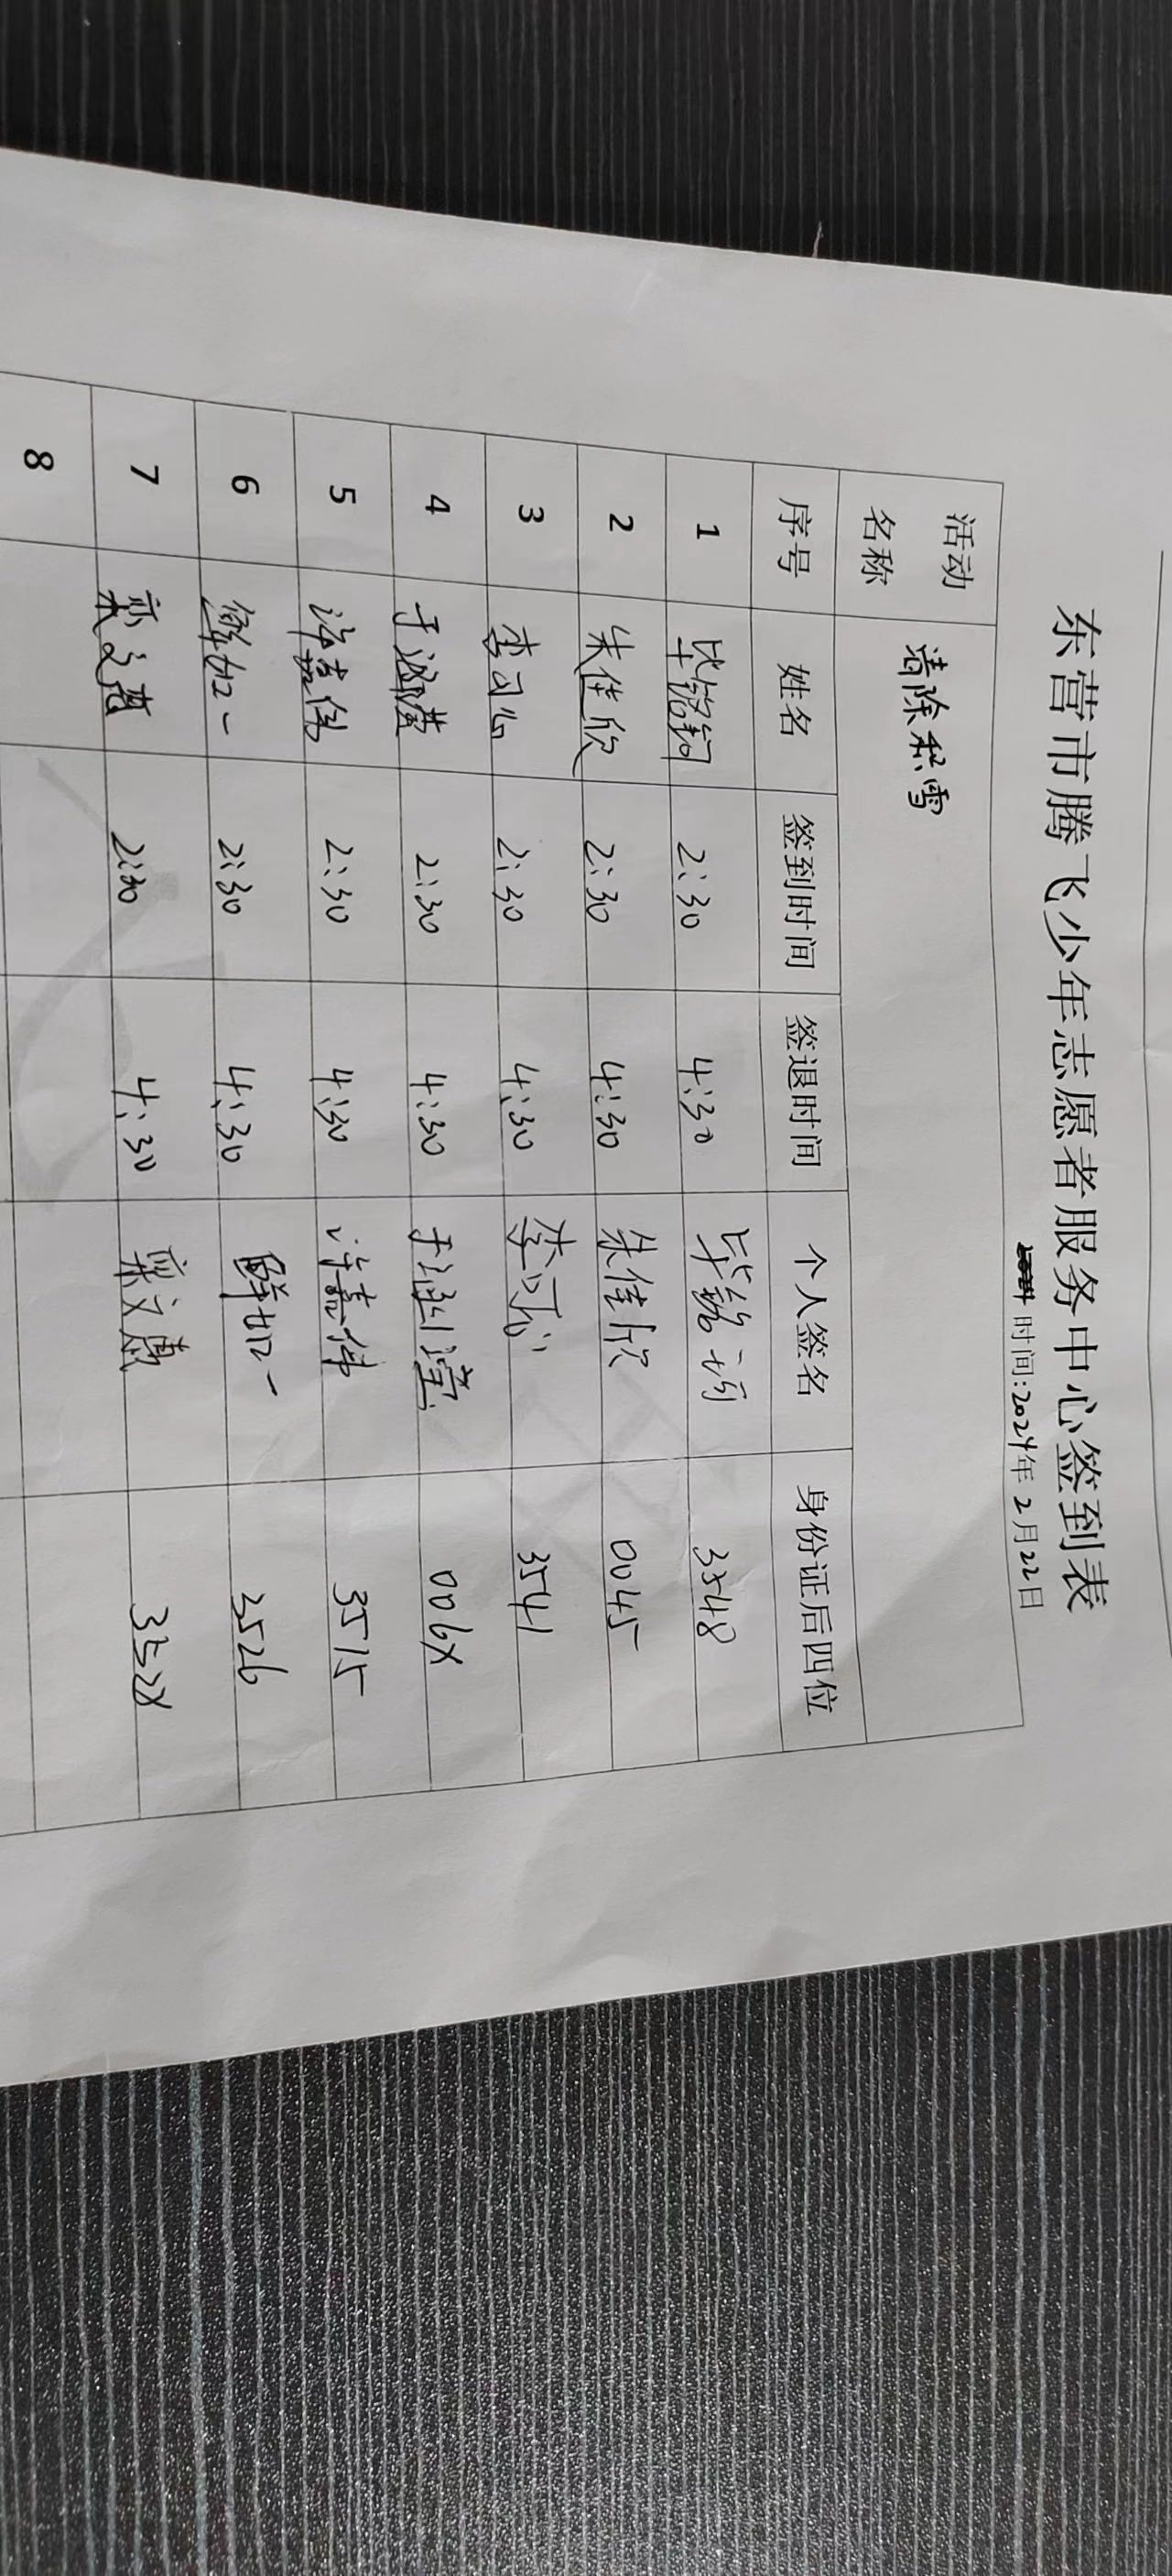 东营市腾飞少年志愿者服务中心签到表
时间:2024年2月22日
活动名称 清除积雪
序号 姓名 签到时间 签退时间 个人签名 身份证后四位
1 2:30 4:30 3548
2 朱佳欣 2:30 4:30 朱佳欣 0045
3 2:30 4:30 3541
4 2:30 4:30 006X
5 2:30 4:30 许嘉伟 3515
6 2:30 4:30 3526
7 2:30 4:30 352X
8